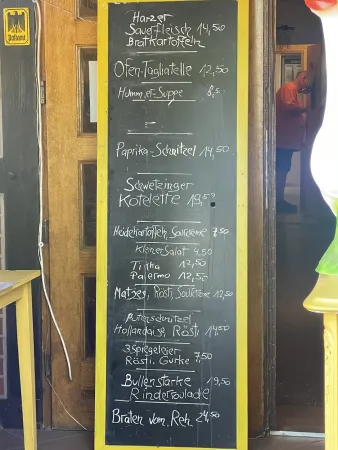 Harzer
Sauerfleisch 14,50
Bratkartoffeln
Ofen-Tagliatelle 12,50
Hummer-Suppe
Paprika-Schnitzel 14,50
Schwetzinger
Kotelette 19,50
Heidekartoffeln, Sourcreme 7,50
Kleiner Salat 4,50
12,50
Palermo 12,50
Matjes, Rösti, 12,50
Putenschnitzel
Hollandaise, Rösti 14,50
3 Spiegeleier
Rösti, Gurke 7,50
Bullenstarke 19,50
Rinderroulade
Braten vom Reh 24,50